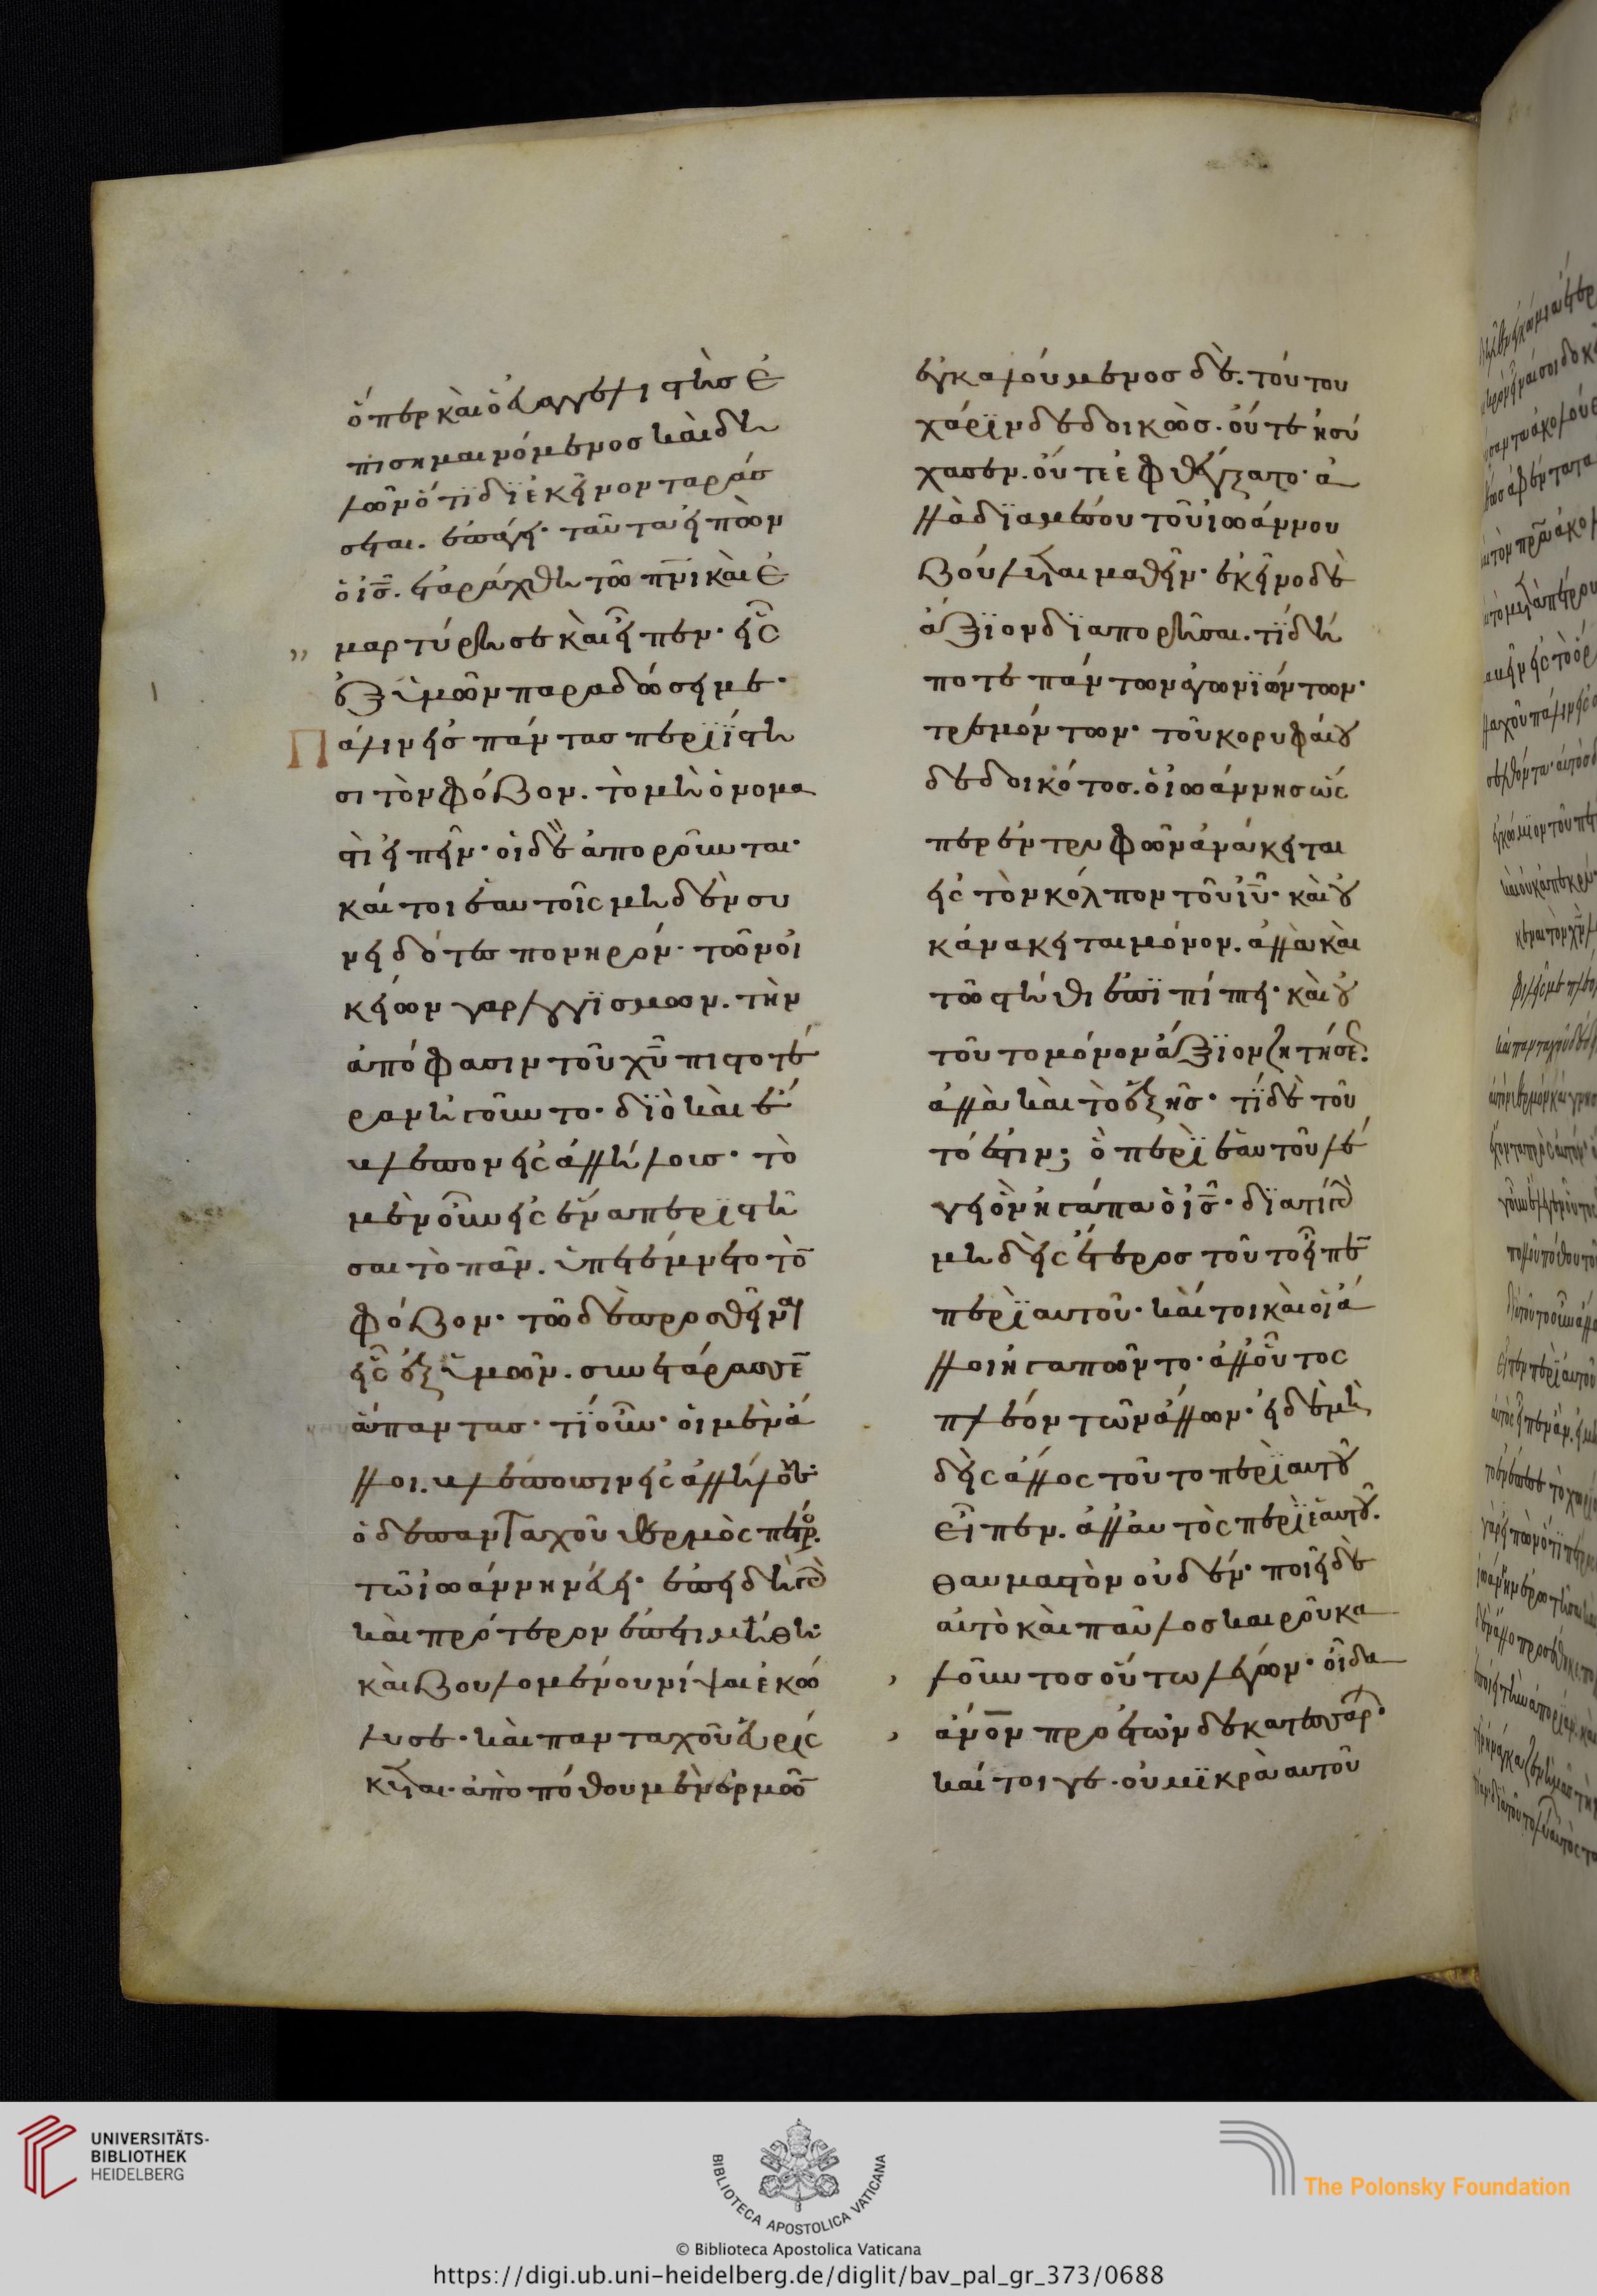 ὅπερ καὶ ὁ εὐαγγελιστὴς ἐ
πισημαινόμενος καὶ δη
λῶν ὅτι δι' ἐκεῖνον ταράσ
σεται. ἐπάγει· ταῦτα εἰπὼν
ὁ ις. ἐταράχθη τῶ πνι καὶ ἐ
μαρτύρησε καὶ εἶπεν· εἷς
ἐξ ὑμῶν παραδώσει με·
Πάλιν εἰς πάντας περιίστη
σι τὸν φόβον. τὸ μὴ ὄνομα
στὶ εἰπεῖν· οἱ δὲ ἀποροῦνται·
καίτοι ἑαυτοῖς μηδὲν συ
νειδότες πονηρόν· τῶν οἰ
κείων γὰρ λογισμῶν. τὴν
ἀπόφασιν τοῦ χυ πιστοτέ
ραν ἡγοῦντο· διὸ καὶ ἔ
βλεπον εἰς ἀλλήλους· τὸ
μὲν οὖν εἰς ἕνα περιστῆ
σαι τὸ πᾶν. ὑπετέμνετο τὸν
φόβον· τῶ δὲ προσθεῖναι
εἷς ἐξ ὑμῶν. συνετάρασσεν
ἅπαντας· τί οὖν· οἱ μὲν ἄλ
λοι. βλέπουσιν εἰς ἀλλήλους·
ὁ δὲ πανταχοῦ θερμὸς πέτρος.
τῶ ἰωάννη νεύει· ἐπειδὴ γὰρ
καὶ πρότερον ἐπετιμήθη·
καὶ βουλομένου νίψαι ἐκώ
λυσε· καὶ πανταχοῦ εὑρίσ
κεται· ἀπὸ πόθου μὲν ὁρμῶν
ἐγκαλούμενος δέ. τούτου
χάριν δεδοικὼς. οὔτε ἡσύ
χασεν. οὔτε ἐφθέγξατο· ἀλ
λὰ διὰ μέσου τοῦ ἰωάννου
βούλεται μαθεῖν· ἐκεῖνο δὲ
ἄξιον διαπορῆσαι. τί δή
ποτε πάντων ἀγωνιώντων·
τρεμόντων· τοῦ κορυφαίου
δεδοικότος. ὁ ἰωάννης ὥσ
περ ἐντρυφῶν ἀνάκειται
εἰς τὸν κόλπον τοῦ ιυ· καὶ οὐ
κ ἀνάκειται μόνον. ἀλλὰ καὶ
τῶ στήθει ἐπιπίπτει· καὶ οὐ
τοῦτο μόνον ἄξιον ζητήσεως.
ἀλλὰ καὶ τὸ ἑξῆς· τί δὲ τοῦ
τό ἐστιν; ὃ περὶ ἑαυτοῦ λέ
γει ὃν ἠγάπα ὁ ις· διατί γὰρ
μηδεὶς ἕτερος τοῦτο εἶπεν
περὶ αὐτοῦ· καίτοι καὶ οἱ ἄλ
λοι ἠγαπῶντο· ἀλλ' οὗτος
πλέον τῶν ἄλλων· εἰ δὲ μη
δεὶς ἄλλος τοῦτο περὶ αὐτοῦ
εἶπεν. ἀλλ' αὐτὸς περὶ ἑαυτοῦ.
θαυμαστὸν οὐδέν· ποιεῖ δὲ
αὐτὸ καὶ παῦλος καιροῦ κα
λοῦντος οὕτω λέγων· οἶδα
ἄνον πρὸ ἐτῶν δεκατεσσάρων·
καίτοιγε. οὐ μικρὰ αὐτοῦ
UNIVERSITÄTS-
BIBLIOTHEK
HEIDELBERG
BIBLIOTECA APOSTOLICA VATICANA
© Biblioteca Apostolica Vaticana
The Polonsky Foundation
https://digi.ub.uni-heidelberg.de/diglit/bav_pal_gr_373/0688